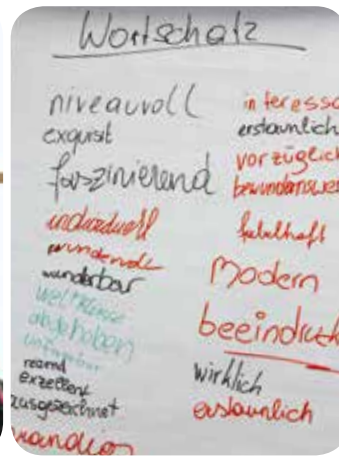 Wortschatz
niveauvoll
exquisit
faszinierend
individuell
wundervoll
wunderbar
weltklasse
abgehoben
exzellent
ausgezeichnet
grandios
interessa
erstaunlich
vorzüglich
bewundernswer
fabelhaft
Modern
beeindruck
wirklich
erstaunlich